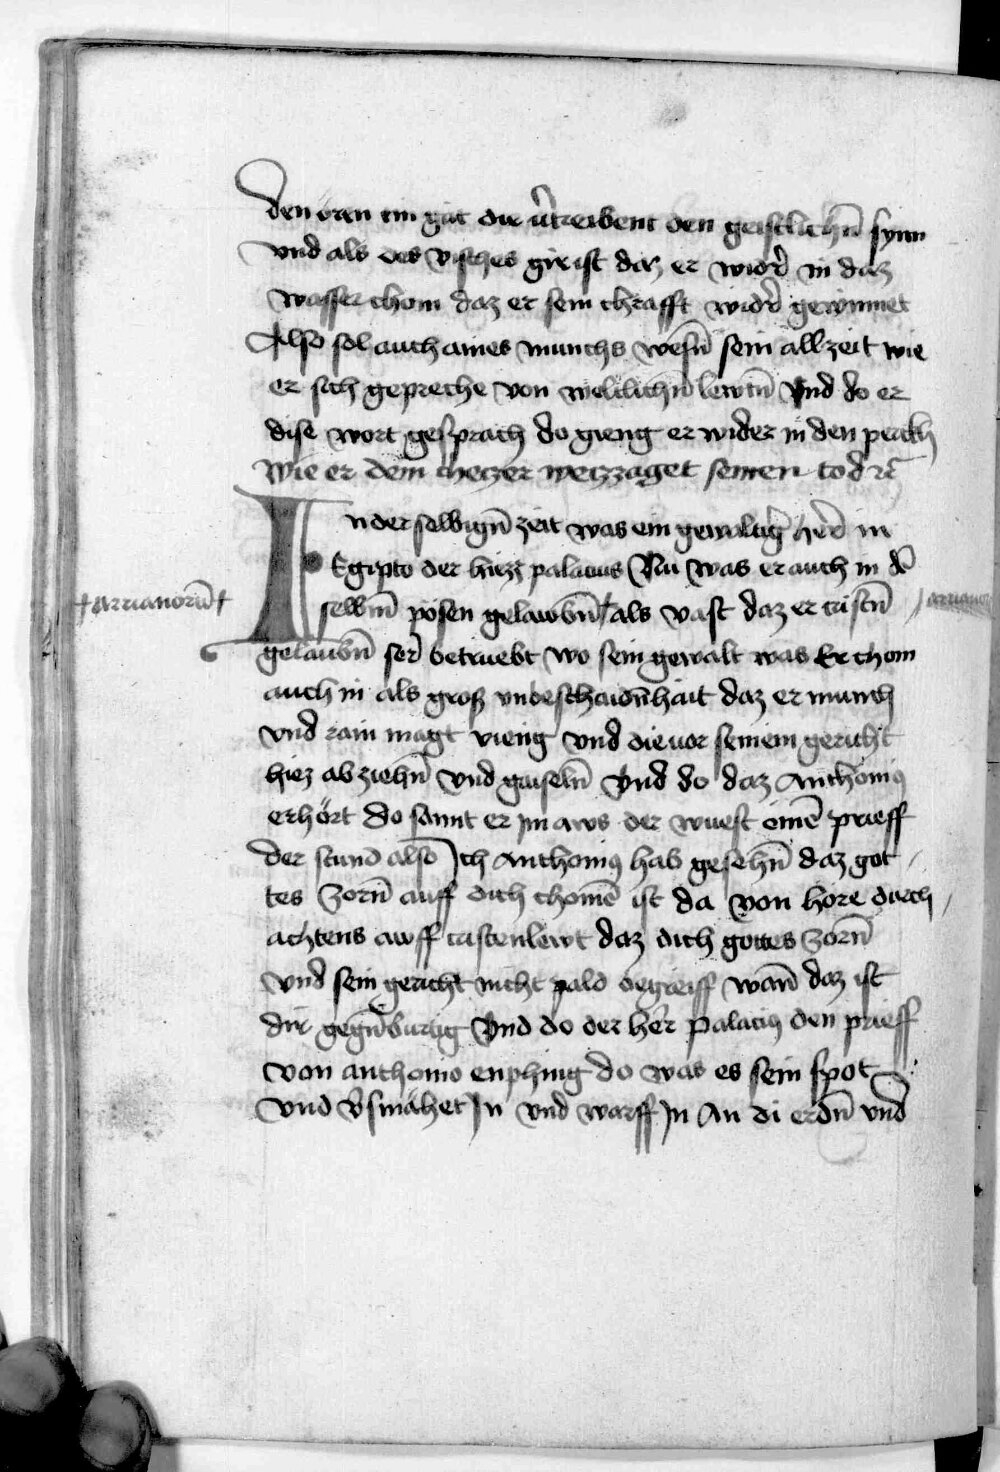 den oren ein gät die v̓treibent den geistlichn̄ synn
vnd als des visches gir ist daz er wider̓ in daz
wasser chom daz er sein chrafft wider̓ gewinnet
Also sol auch aines munchs wesn̄ sein allzeit wie
er sich gepreche von weltlichn̄ lewtn̄ Vnd do er
dise wort gesprach do gieng er wider in den perkh
Wie er dem checzer weyzzaget seinen tod ꝛc̄
In der selbign̄ zeit was ein gewaltig̓ her̓ in
Egipto der hiezz palacius Nu was er auch in dē
†arrianorū†
selbm̄ pösen gelawbn̄ † als vast daz er cristn̄
gelaubn̄ ser̓ betruebt wo sein gewalt was Er chom
auch in als groß vnbeschaidn̄hait daz er munch
vnd rain magt vieng vnd die vor seinem gericht
hiez abziehn̄ vnd gaiseln̄ Vnd do daz Anthoniꝰ
erhört do sannt er im aws der wuest einē prieff
der stund also Ich Anthoniꝰ hab gesehn̄ daz got
tes zorn̄ auff dich chomē ist da von höre durch
achtens awff cristenlewt daz dich gottes zorn̄
vnd sein gericht nicht pald begreiff wan̄ daz ist
dir gegn̄burtig Vnd do der her̓r Palaciꝰ den prieff
von anthonio enphing do was es sein spot
vnd v̓smähet In vnd warff In An di erdn̄ vnd